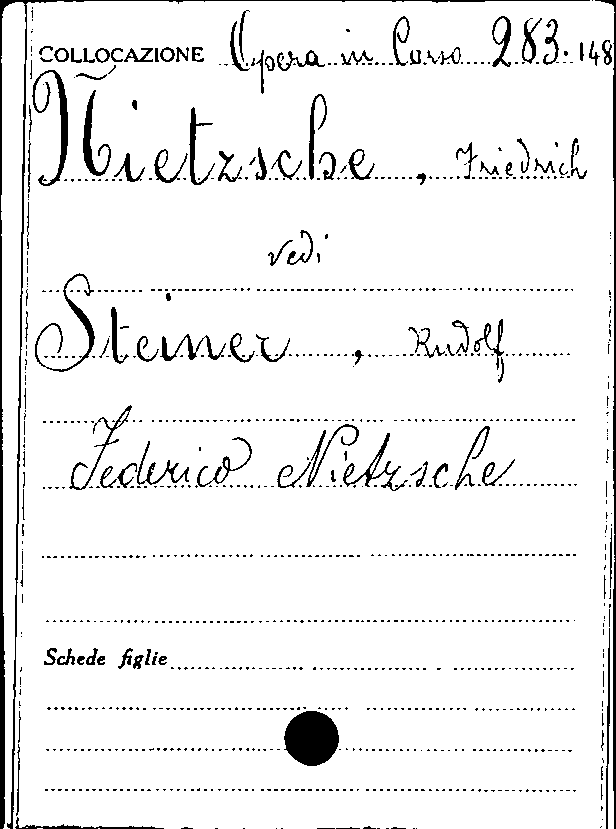 COLLOCAZIONE Opera in Corso 283.148
Nietzsche, Friedrich
vedi
Steiner, Rudolf
Federico Nietzsche
Schede figlie